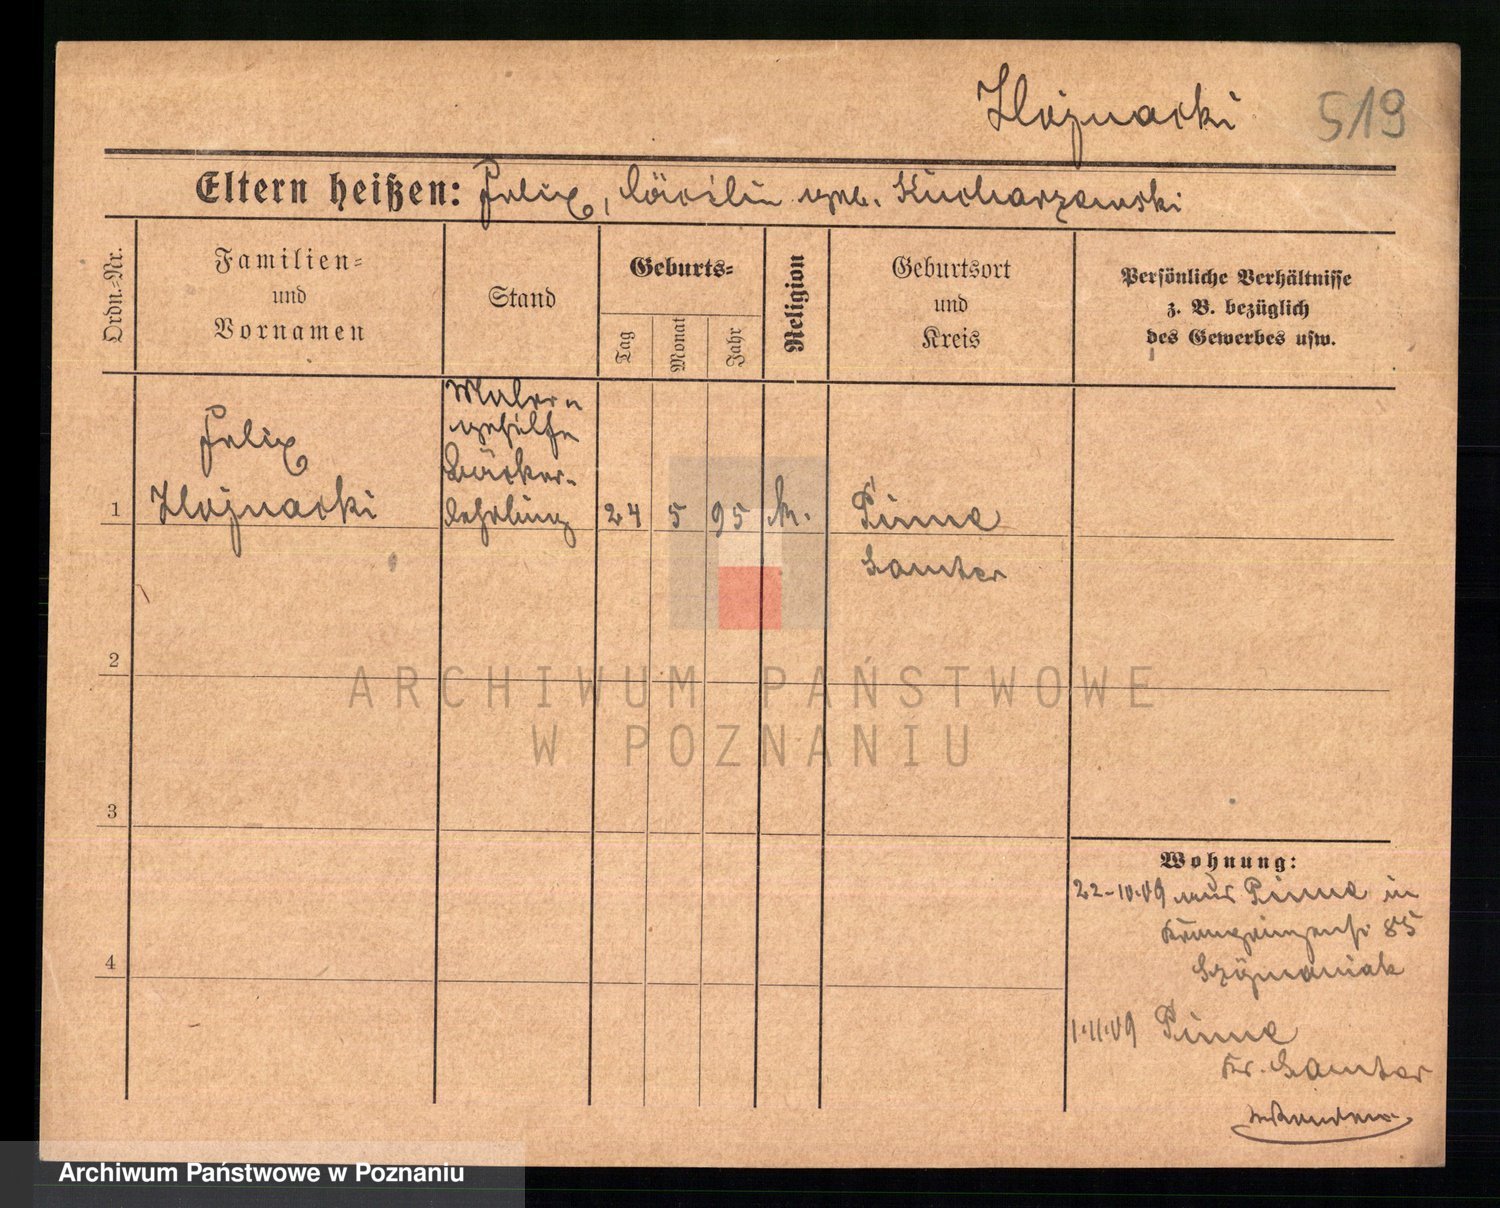 Hojnacki 519
Eltern heißen: Felix, Cäcilia geb. Kucharzewski
Ordn.-Nr.
Familien-
und
Vornamen
Stand
Geburts-
Tag
Monat
Jahr
Religion
Geburtsort
und
Kreis
Persönliche Verhältnisse
z. B. bezüglich
des Gewerbes usw.
1
Felix
Hojnacki
Maler
gehilfe
Bäcker-
lehrling
24 5 95 k.
Pinne
Samter
2
3
4
Wohnung:
22-10.09 aus Pinne in
Kronprinzenstr 85
Szymaniak
1.11.09 Pinne
Kr. Samter
ARCHIWUM PAŃSTWOWE
W POZNANIU
Archiwum Państwowe w Poznaniu